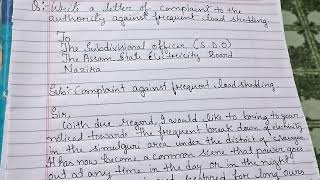 Q:- Write a letter of complaint to the
authority against frequent load shedding.
To
The Subdivisional officer (S.D.O)
The Assam State Electricity Board
Nazira
Sub:- Complaint against frequent load shedding.
Sir,
With due regard, I would like to bring to your
noticed towards the frequent break down of electricity
in the simulguri area under the district of
It has now become a common scene that power goes
out at any time in the day or in the night
restored for long ours